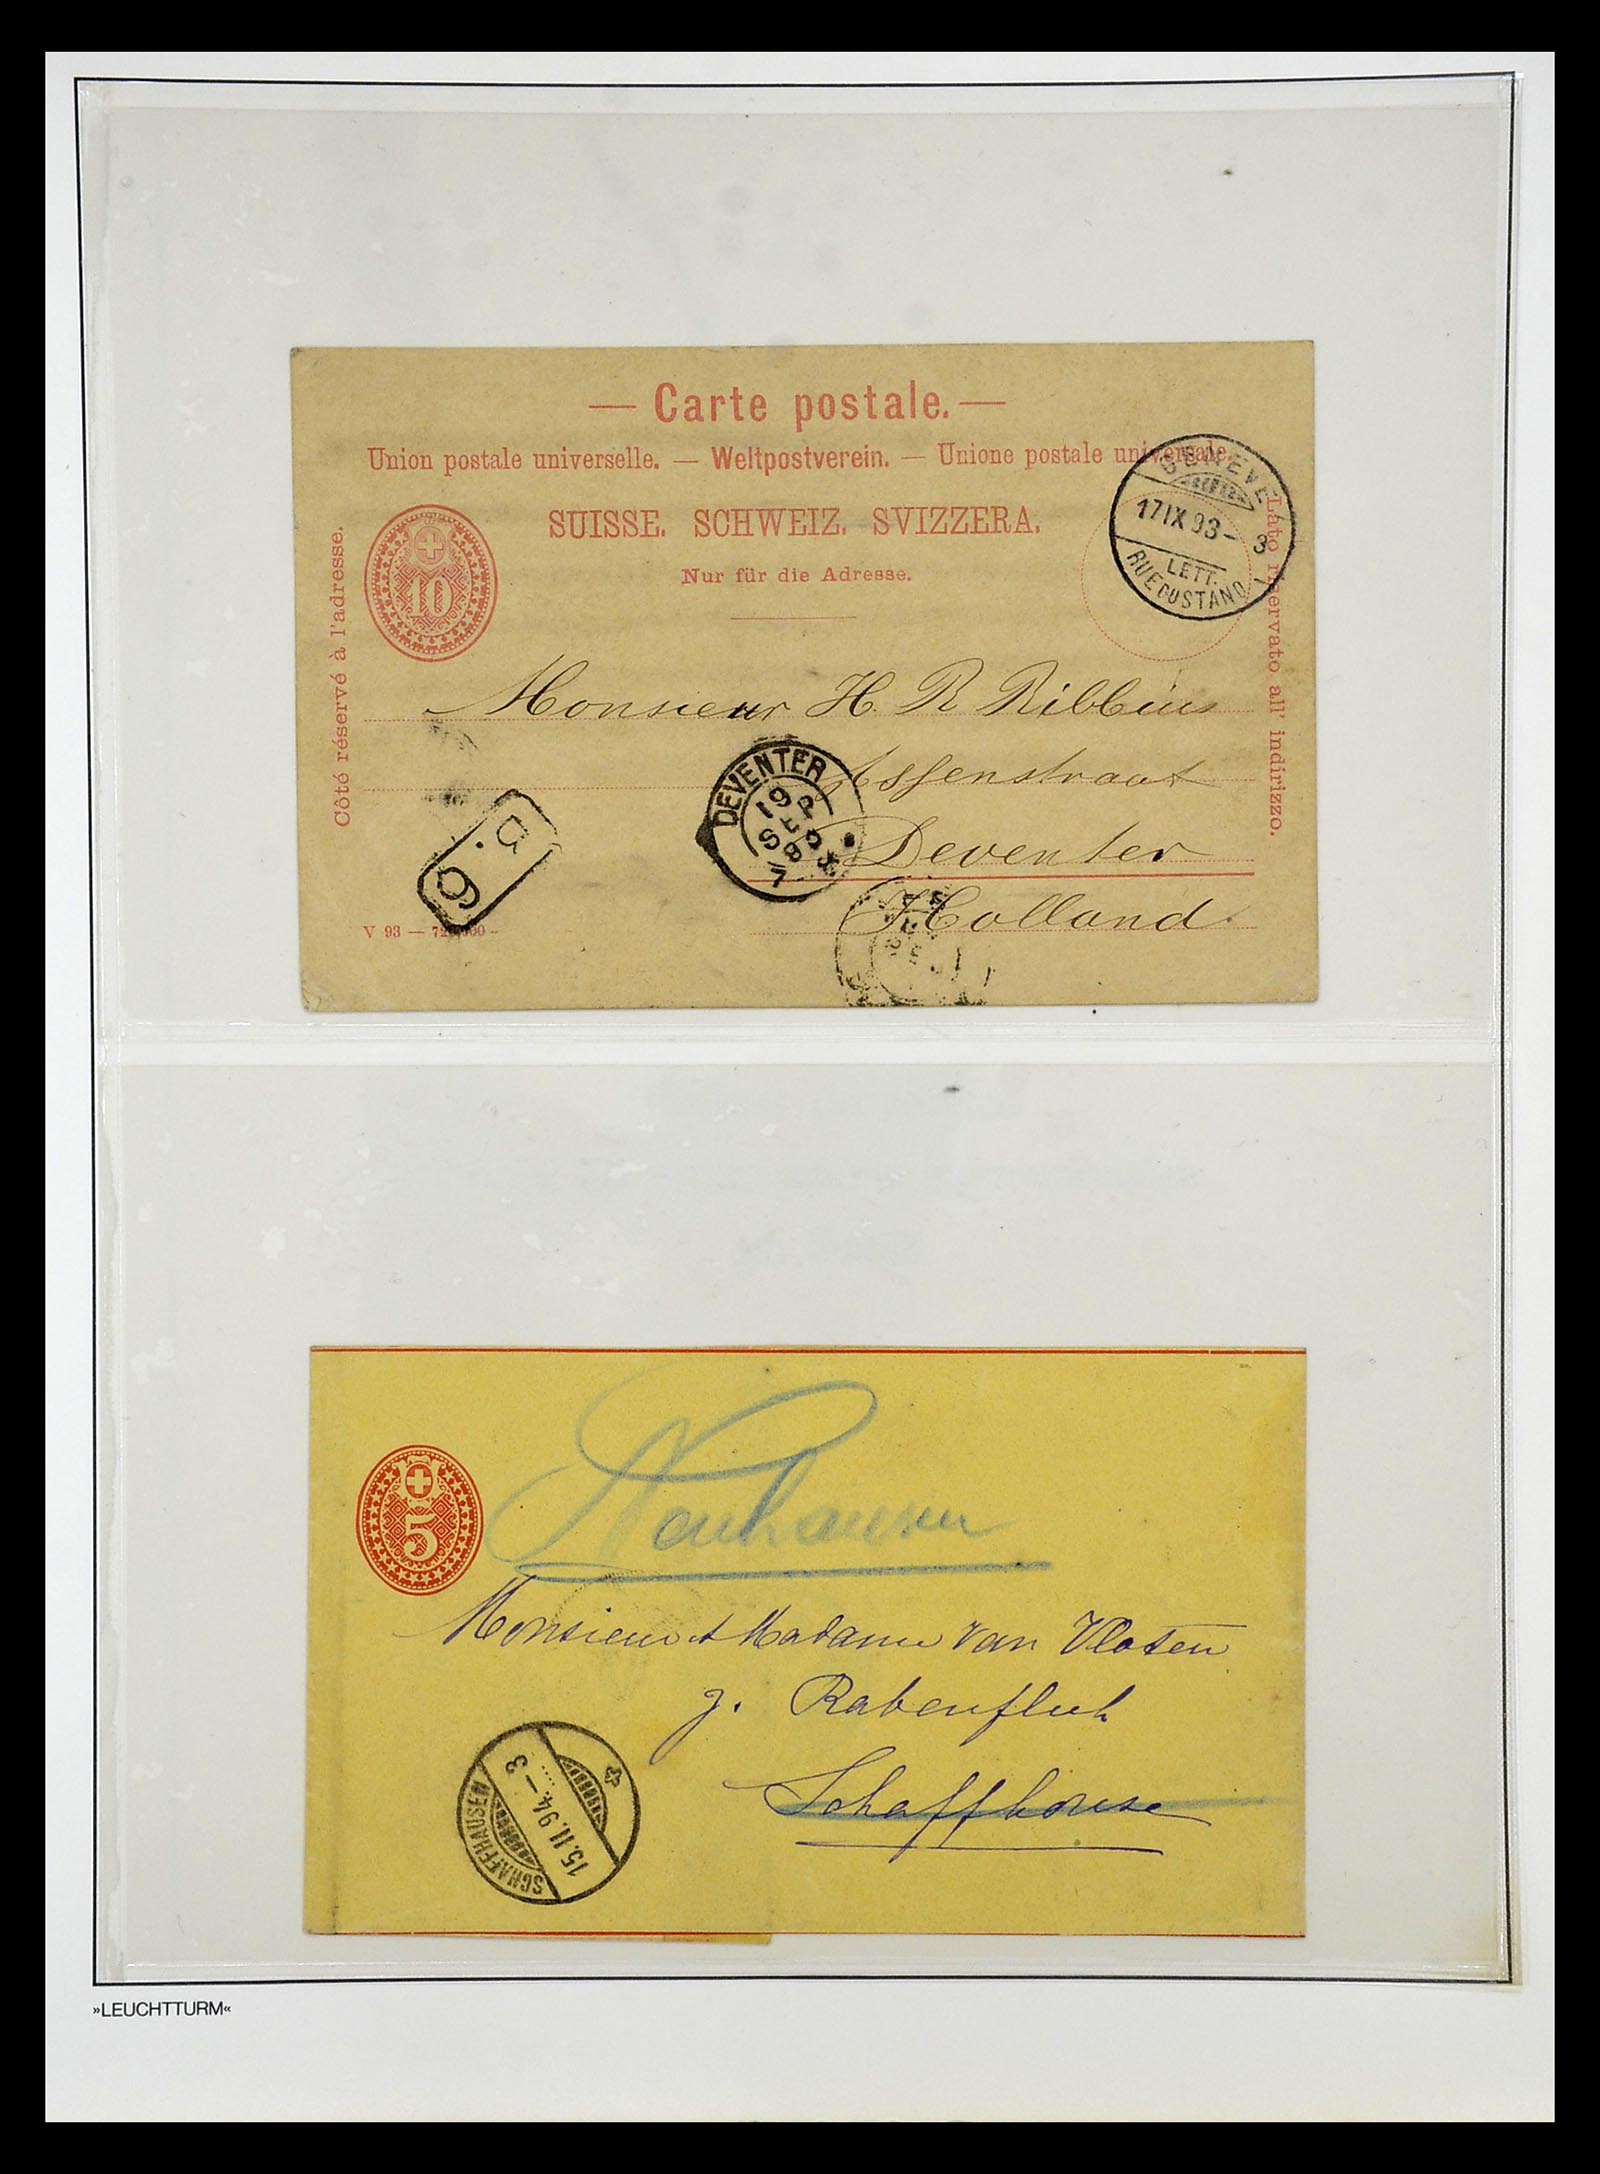 — Carte postale. —
Union postale universelle. — Weltpostverein. — Unione postale universale.
SUISSE. SCHWEIZ. SVIZZERA.
Nur für die Adresse.
Côté réservé à l'adresse.
Lato riservato all' indirizzo.
10
GENEVE
17 IX 93 - 3
LETT.
RUE DU STAND
Monsieur H. R. Ribbius
Assenstraat
Deventer
Holland
DEVENTER
19 SEP 93
D. 6
V 93 —
5
Neuhausen
Monsieur & Madame van Vloten
z. Rabenfluh
Schaffhouse
SCHAFFHAUSEN
15.II.94.-3
»LEUCHTTURM«